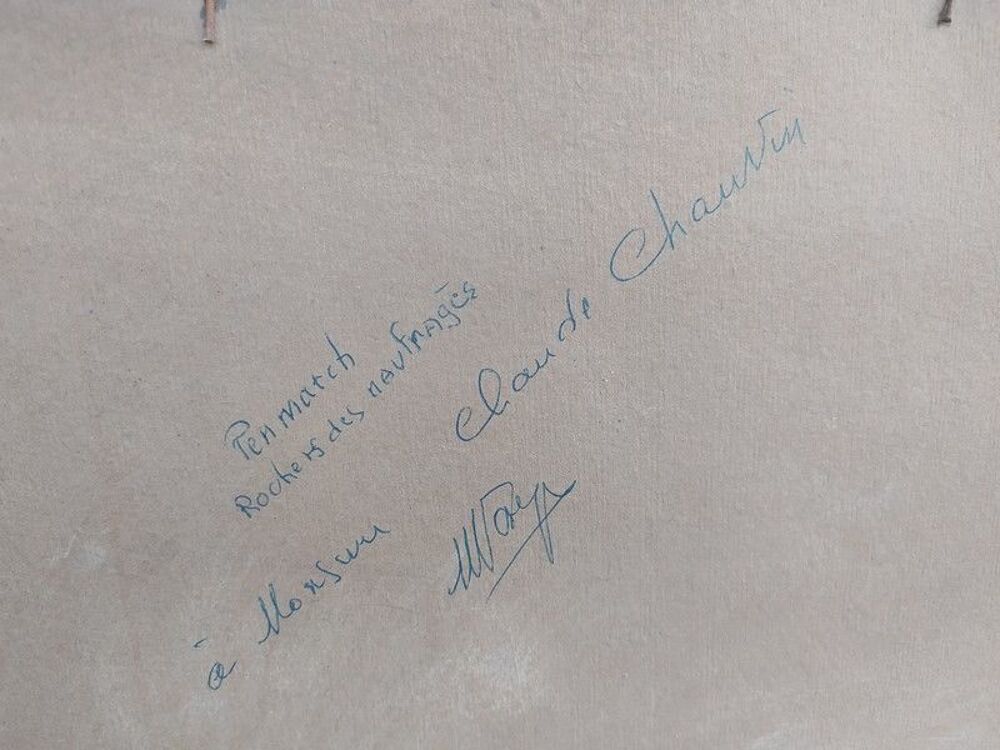 Penmarch
Rochers des naufragés
à Monsieur Claude Chauvin